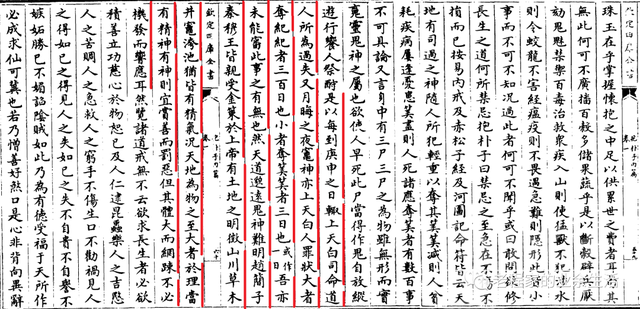 欽定四庫全書
珠玉在乎掌握懷抱之中足以供累世之費者耳苟其
無此何可不廣播百穀多儲果蔬乎是以斷穀辟兵厭
劾鬼魅禁禦百毒治救衆疾入山則使猛獸不犯涉水
則令蛟龍不害經瘟疫則不畏遇急難則隱形此皆小
事而不可不知況過此者何可不聞乎或曰敢問欲修
長生之道何所禁忌抱朴子曰禁忌之至急在不傷不
損而已按易內戒及赤松子經及河圖記命符皆云天
地有司過之神隨人所犯輕重以奪其算算減則人貧
耗疾病屢逢憂患算盡則人死諸應奪算者有數百事
不可具論又言身中有三尸三尸之為物雖無形而實
魂靈鬼神之屬也欲使人早死此尸當得作鬼自放縱
遊行饗人祭酹是以每到庚申之日輒上天白司命道
人所為過失又月晦之夜竈神亦上天白人罪狀大者
奪紀紀者三百日也小者奪算算者三日也或作一日吾亦
未能審此事之有無也然天道邈遠鬼神難明趙簡子
秦穆王皆親受金策於上帝有土地之明徵山川草木
欽定四庫全書
井竈洿池猶皆有精氣況天地為物之至大者於理當
有精神有神則宜賞善而罰惡但其體大而網疎不必
機發而響應耳然覽諸道戒無不云欲求長生者必欲
積善立功慈心於物恕己及人仁逮昆蟲樂人之吉愍
人之苦賙人之急救人之窮手不傷生口不勸禍見人
之得如己之得見人之失如己之失不自貴不自譽不
嫉妬勝己不媚諂陰賊如此乃為有德受福於天所作
必成求仙可冀也若乃憎善好煞口是心非背向異辭